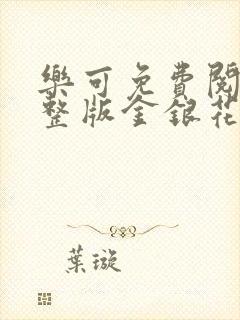 樂可免費閱
整版金銀花
葉璇